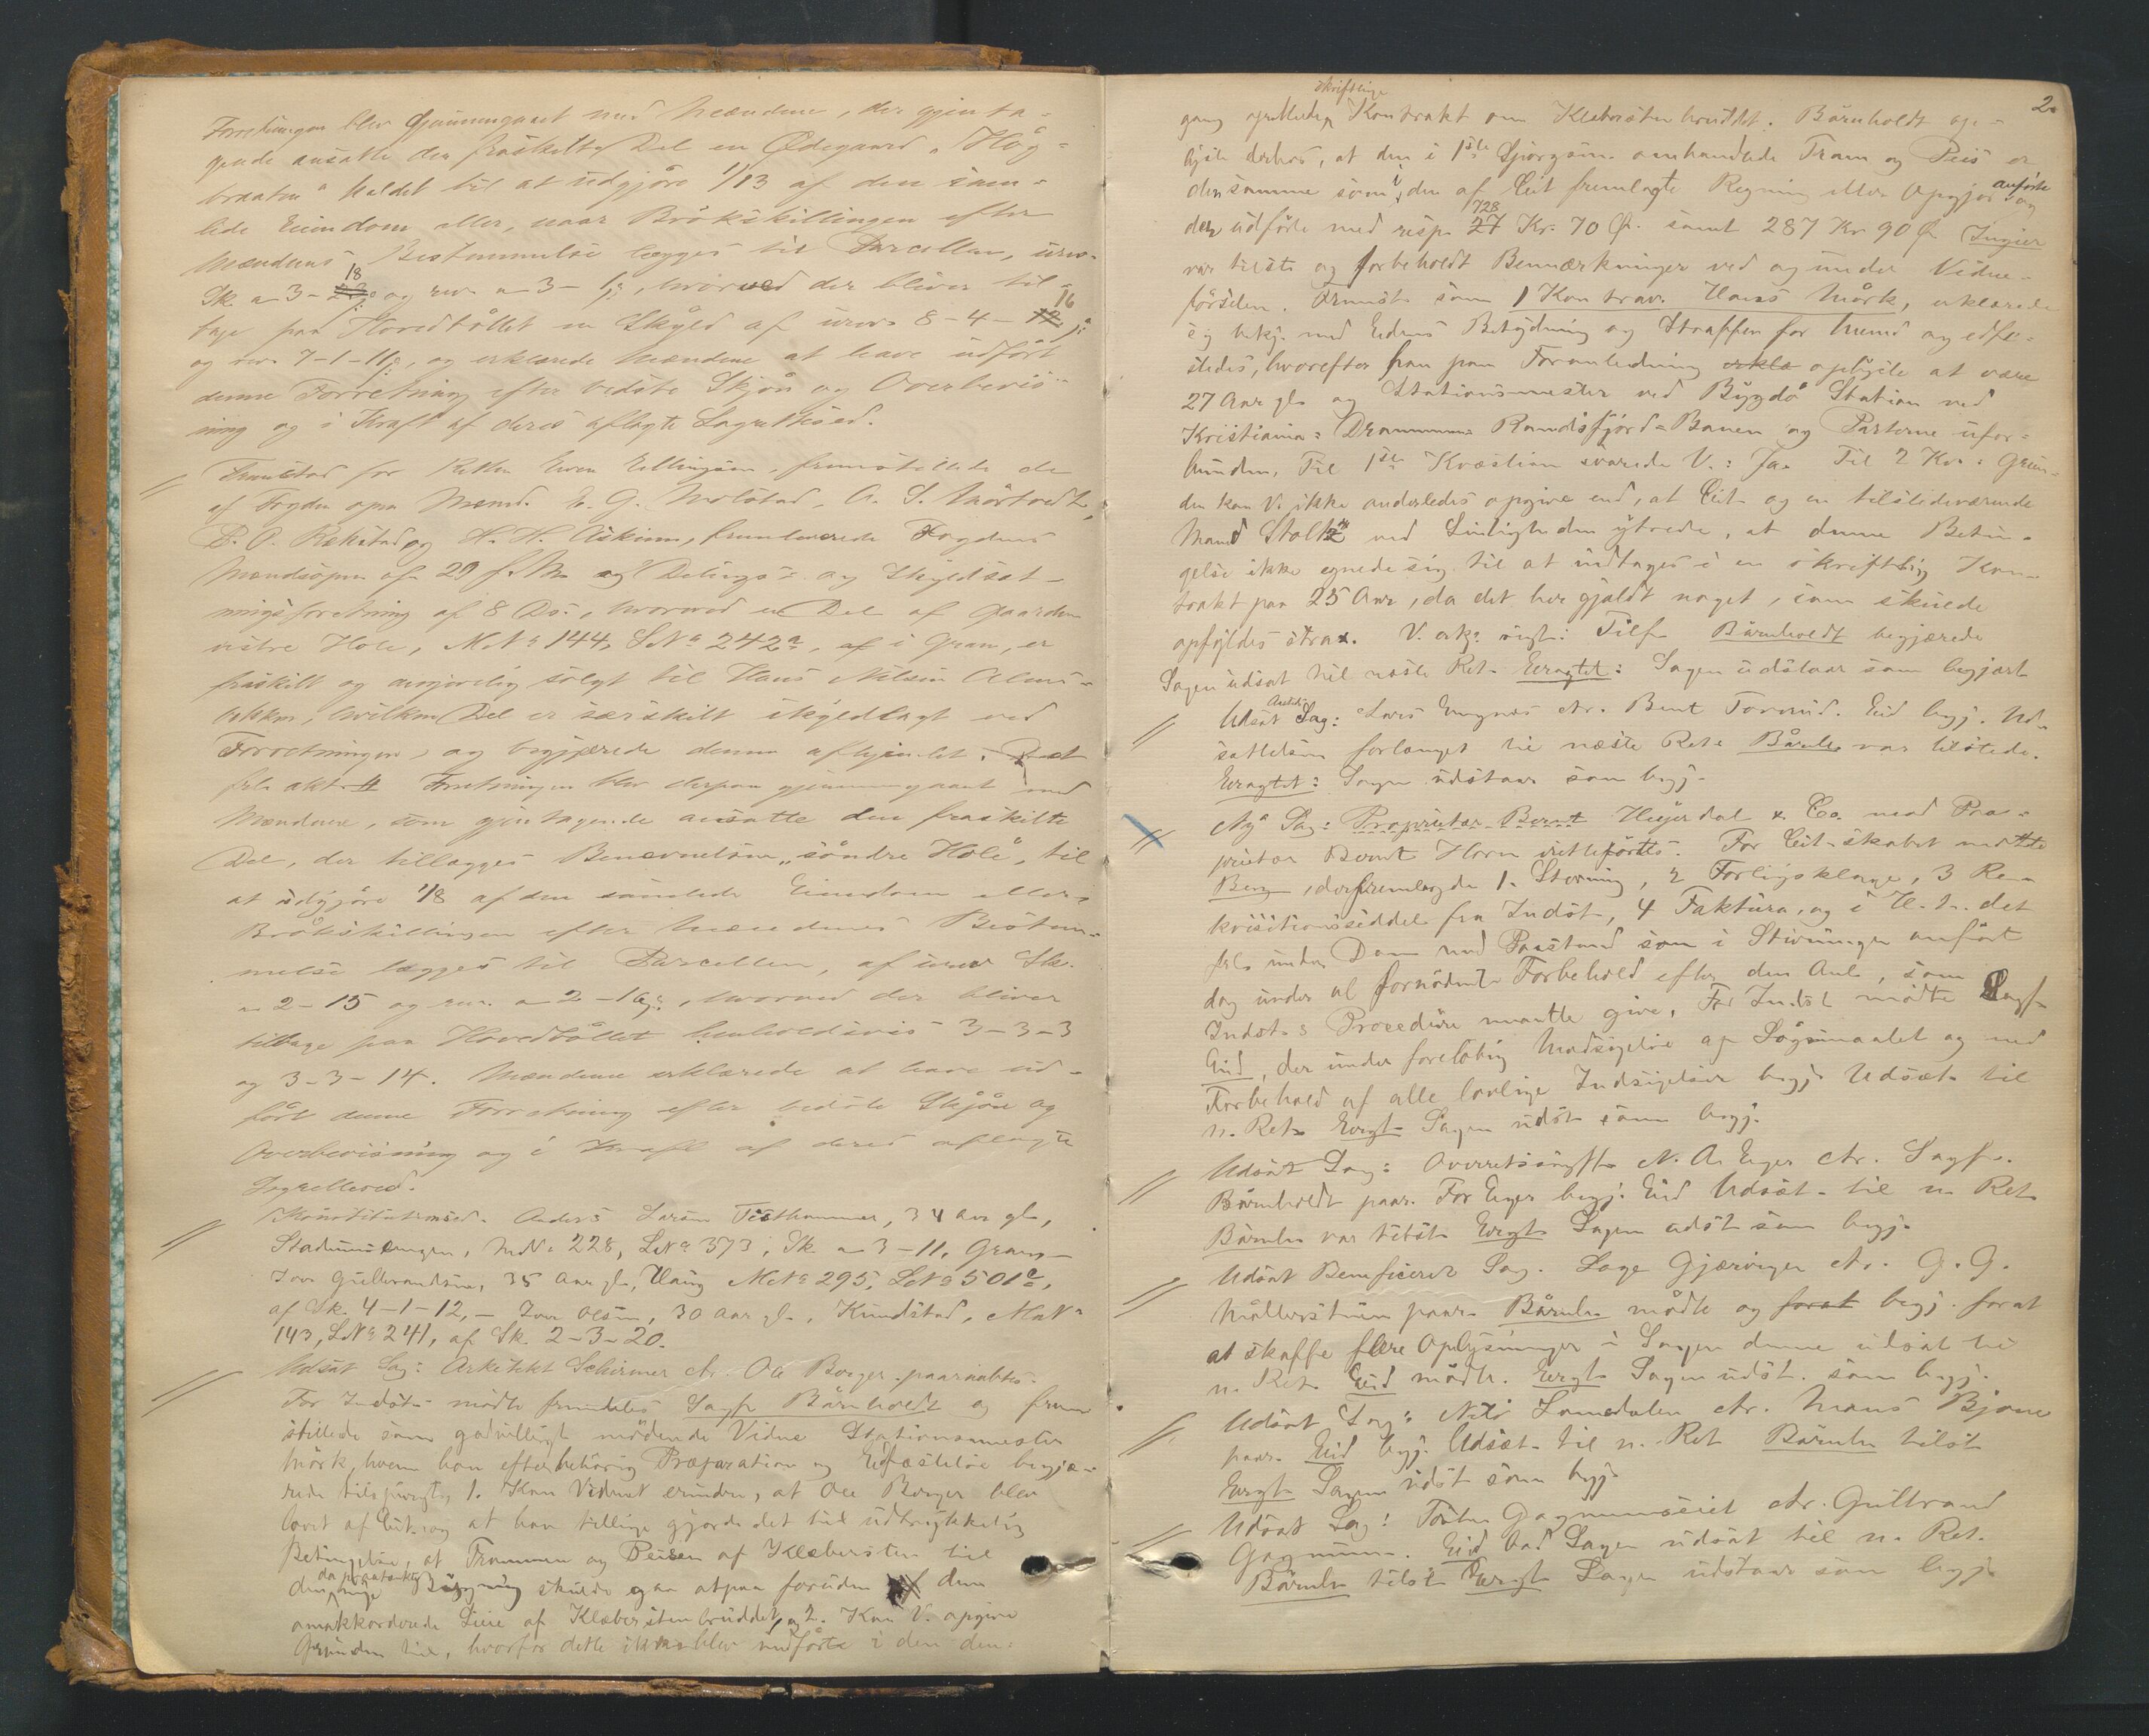 Forretningen blev gjennemgaaet med Mændene, der gjenta-
gende ansatte den fraskilte Del en Ødegaard „Hög-
braaten" kaldet til at udgjöre 1/13 af den sam-
lede Eiendom eller, naar Brökskillingen efter
Mændenes Bestemmelse lægges til Parcellen, urev.
Sk. a 3- 18 og rev. a 3- , hvorved der bliver til-
bage paa Hovedböllet en Skyld af urev. 8-4-16
og rev. 7-1-11, og erklærede Mændene at have udfört
denne Forretning efter bedste Skjön og Overbevis-
ning og i Kraft af deres aflagte Lagrettesed.
// Fremstod for Retten Iver Ellingsen, fremstillede de
af Fogden opn. Mænd. E. G. Molstad, A. S. ,
P. O. Rækstad og H. H. Askim, fremleverede Fogdens
Mændsopn. af 29 f. M. og Delings- og Skyldsæt-
ningsforretning af 8 Ds., hvorved en Del af Gaarden
vestre Hole, M.No 144, L.No 242a, i Gran, er
fraskilt og solgt til Hans Nilsen Alms-
, hvilken Del er særskilt skyldlagt ved
Forretningen, og begjærede denne afhjemlet.
Forretningen blev derpaa gjennemgaaet med
Mændene, som gjentagende ansatte den fraskilte
Del, der tillægges Benævnelsen „söndre Hole", til
at udgjöre 1/8 af den samlede Eiendom eller,
Brökskillingen efter Mændenes Bestem-
melse lægges til Parcellen, af urev. Sk.
a 2-15 og rev. a 2-16, hvorved der bliver
tilbage paa Hovedböllet henholdsvis 3-3-3
og 3-3-14. Mændene erklærede at have ud-
fört denne Forretning efter bedste Skjön og
Overbevisning og i Kraft af deres aflagte
Lagrettesed.
// Konstitutionsed. Anders Larsen , 34 Aar gl.,
Stadumsengen, M.No 228, L.No 373, Sk. a 3-11, Gran-
Iver Gulbrandsen, 35 Aar gl., Haug M.No 295, L.No 501,
af Sk. 4-1-12, - Iver Olsen, 30 Aar gl., Kundstad, M.No
143, L.No 241, af Sk. 2-3-20.
// Udsat Sag: Arkitekt Schirmer ctr. Ole Borger paaraabtes.
For Indst. mödte fremdeles Sagf. Bärnholdt og frem-
stillede som godvilligt mödende Vidne Stationsmester
Mörk, hvem han efter behörig Præparation og Edfæstelse begjæ-
rede tilspurgt, 1. Kan Vidnet erindre, at Ole Borger blev
lovet af Cit. og at han tillige gjorde det til udtrykkelig
Betingelse, at Trammen og Peisen af Klebersten til
den nye Bygning skulde gaa atpaa foruden den
omakkorderede Leie af Kleberstenbruddet, og 2. Kan V. opgive
Grunden til, hvorfor dette ikke blev medförte i den den-
2.
skriftlige
gang oprettede Kontrakt om Klebersten bruddet. Bärnholdt op-
lyste derhos, at den i 1ste Spörgsm. omhandlede Tram og Peis er
den samme som i den af Cit. fremlagte Regning eller Opgjör anförte og
der udförte med resp. 728 Kr. 70 Ø. samt 287 Kr 90 Ø. Ingier
var tilste og forbeholdt Bemærkninger ved og under Vidne-
förselen. Fremst. som 1 Kontrav. Hans Mörk, erklærede
sig bekj. med Edens Betydning og Straffen for Mened og edfæ-
stedes, hvorefter han paa Foranledning erkla oplyste at være
27 Aar gl. og Stationsmester ved Bygdö Station ved
Kristiania- Drammens Randsfjord-Banen og Parterne ufor-
bunden. Til 1ste Kvæstion svarede V.: Ja. Til 2 Kv.: Grun-
den kan V. ikke anderledes opgive end, at Cit. og en tilstedeværende
Mand Stoltz ved Leiligheden ytrede, at denne Betin-
gelse ikke egnede sig til at indtages i en skriftlig Kon-
trakt paa 25 Aar, da det her gjaldt noget, som skulde
opfyldes strax. V. Tilfr. Bärnholdt begjærede
Sagen udsat til næste Ret. Eragtet: Sagen udstaar som begjært
// Udsat Sag: Lars ctr. Bent . Eid begj. Ud-
sættelsen forlænget til næste Ret. Bärnh. var tilstede.
Eragtet: Sagen udstaar som begj.
// Ny Sag: Proprietær Bernt Heyerdal & Co. mod Pro-
prietær Bernt Horn retteförtes. For Cit-skabet mödte
Berg, der fremlagde 1. Stevning, 2 Forligsklage, 3 Re-
kvisitionsseddel fra Indst., 4 Faktura, og i H. t. det
frl. under Dom med Paastand som i Stevningen anfört
dog under al fornödent Forbehold efter den Anl., som
Indst.s Procedure maatte give. For Indst. mödte Sagf.
Eid, der under foreløbig Modsigelse af Sögsmaalet og med
Forbehold af alle lovlige Indsigelser begj. Udsæt. til
n. Ret. Eragt. Sagen udst. som begj.
// Udsat Sag: Overretssagf. N. A. Eger ctr. Sagf.
Bärnholdt paar. For Eger begj. Eid Udsæt. til n. Ret.
Bärnh. var tilst. Eragt. Sagen udst. som begj.
// Udsat Beneficeret Sag. Lage Gjærvigen ctr. G. G.
Möllerstuen paar. Bärnh. mödte og forat begj. forat
at skaffe flere Oplysninger i Sagen denne udsat til
n. Ret. Eid mödte. Eragt. Sagen udst. som begj.
// Udsat Sag: Nils Lomsdalen ctr. Hans Bjone
paar. Eid begj. Udsæt. til n. Ret Bärnh. tilst.
Eragt. Sagen udst. som begj.
// Udsat Sag: Gagnumseiet ctr. Gulbrand
Gagnum. Eid bad Sagen udsat til n. Ret.
Bärnh. tilst. Eragt. Sagen udstaar som begj.